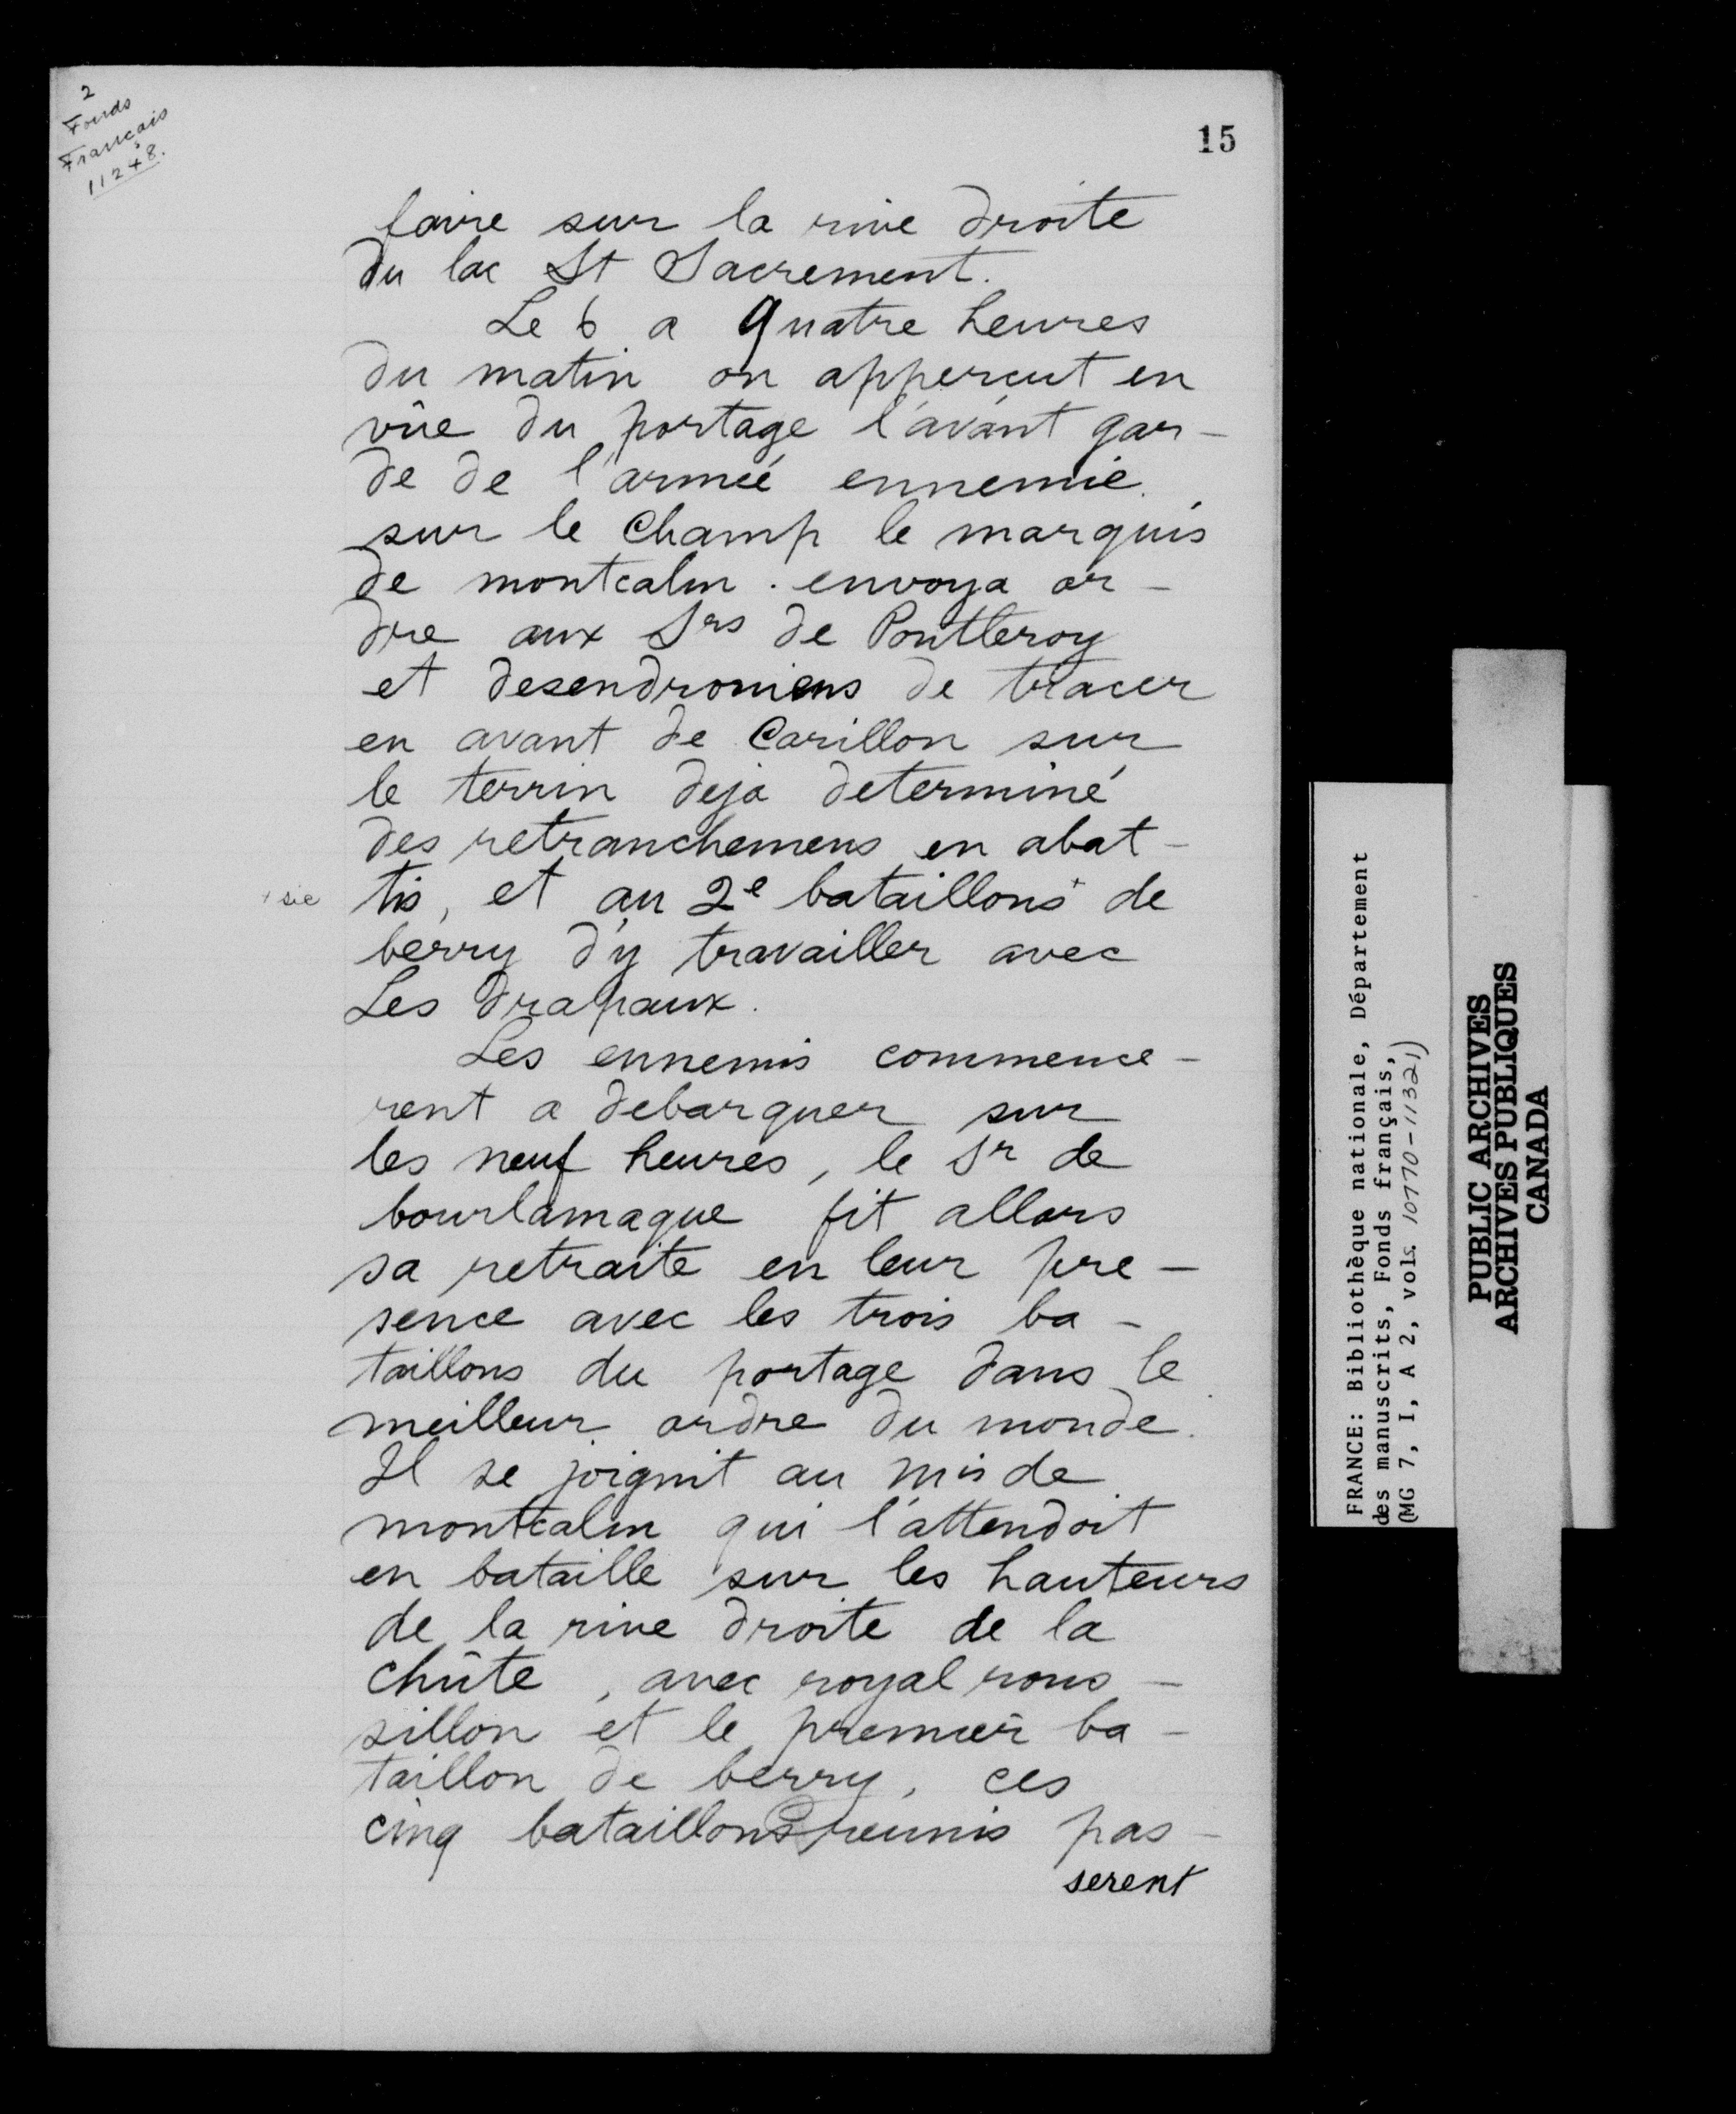 2
Fonds
Français
11248.
15
faire sur la rive droite
du lac St Sacrement.
Le 6 a quatre heures
du matin on apperçut en
vûe du portage l'avant gar-
de de l'armée ennemie.
sur le champ le marquis
de montcalm. envoya or-
dre aux Srs de Pontleroy
et desendroniens de tracer
en avant de Carillon sur
le terrin deja determiné
des retranchemens en abat-
+ sic
tis, et au 2e bataillons+ de
berry d'y travailler avec
Les drapaux.
Les ennemis commence-
rent a debarquer sur
les neuf heures, le Sr de
bourlamaque fit allors
sa retraite en leur pre-
sence avec les trois ba-
taillons du portage dans le
meilleur ordre du monde.
Il se joignit au mis de
montcalm qui l'attendoit
en bataille sur les hauteurs
de la rive droite de la
chûte, avec royal rous-
sillon et le premier ba-
taillon de berry, ces
cinq bataillons reunis pas-
serent
FRANCE: Bibliothèque nationale, Département
des manuscrits, Fonds français,
(MG 7, I, A 2, vols. 10770-11321)
PUBLIC ARCHIVES
ARCHIVES PUBLIQUES
CANADA